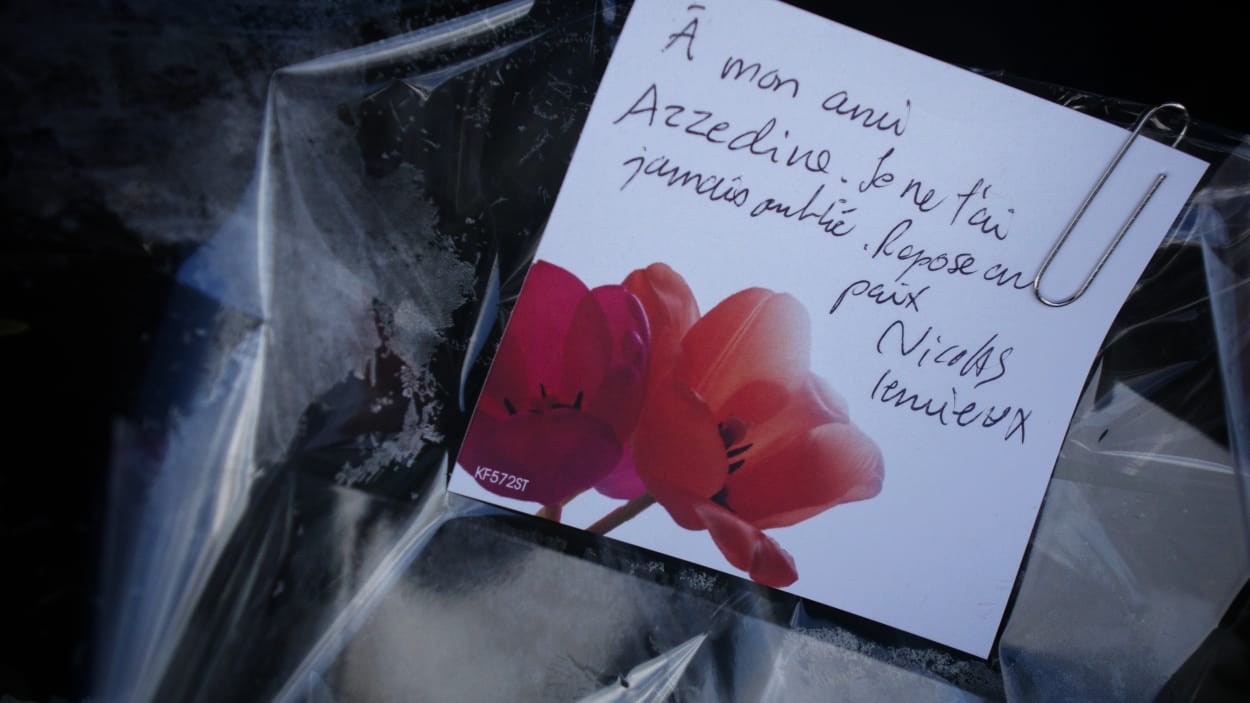 À mon ami
Azzedine. Je ne t'ai
jamais oublié. Repose en
paix
Nicolas
lemieux
KF572ST